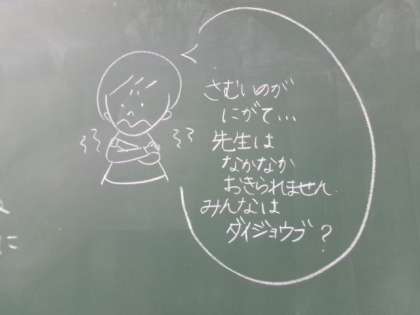 さむいのが
にがて…
先生は
なかなか
おきられません.
みんなは
ダイジョウブ?
に